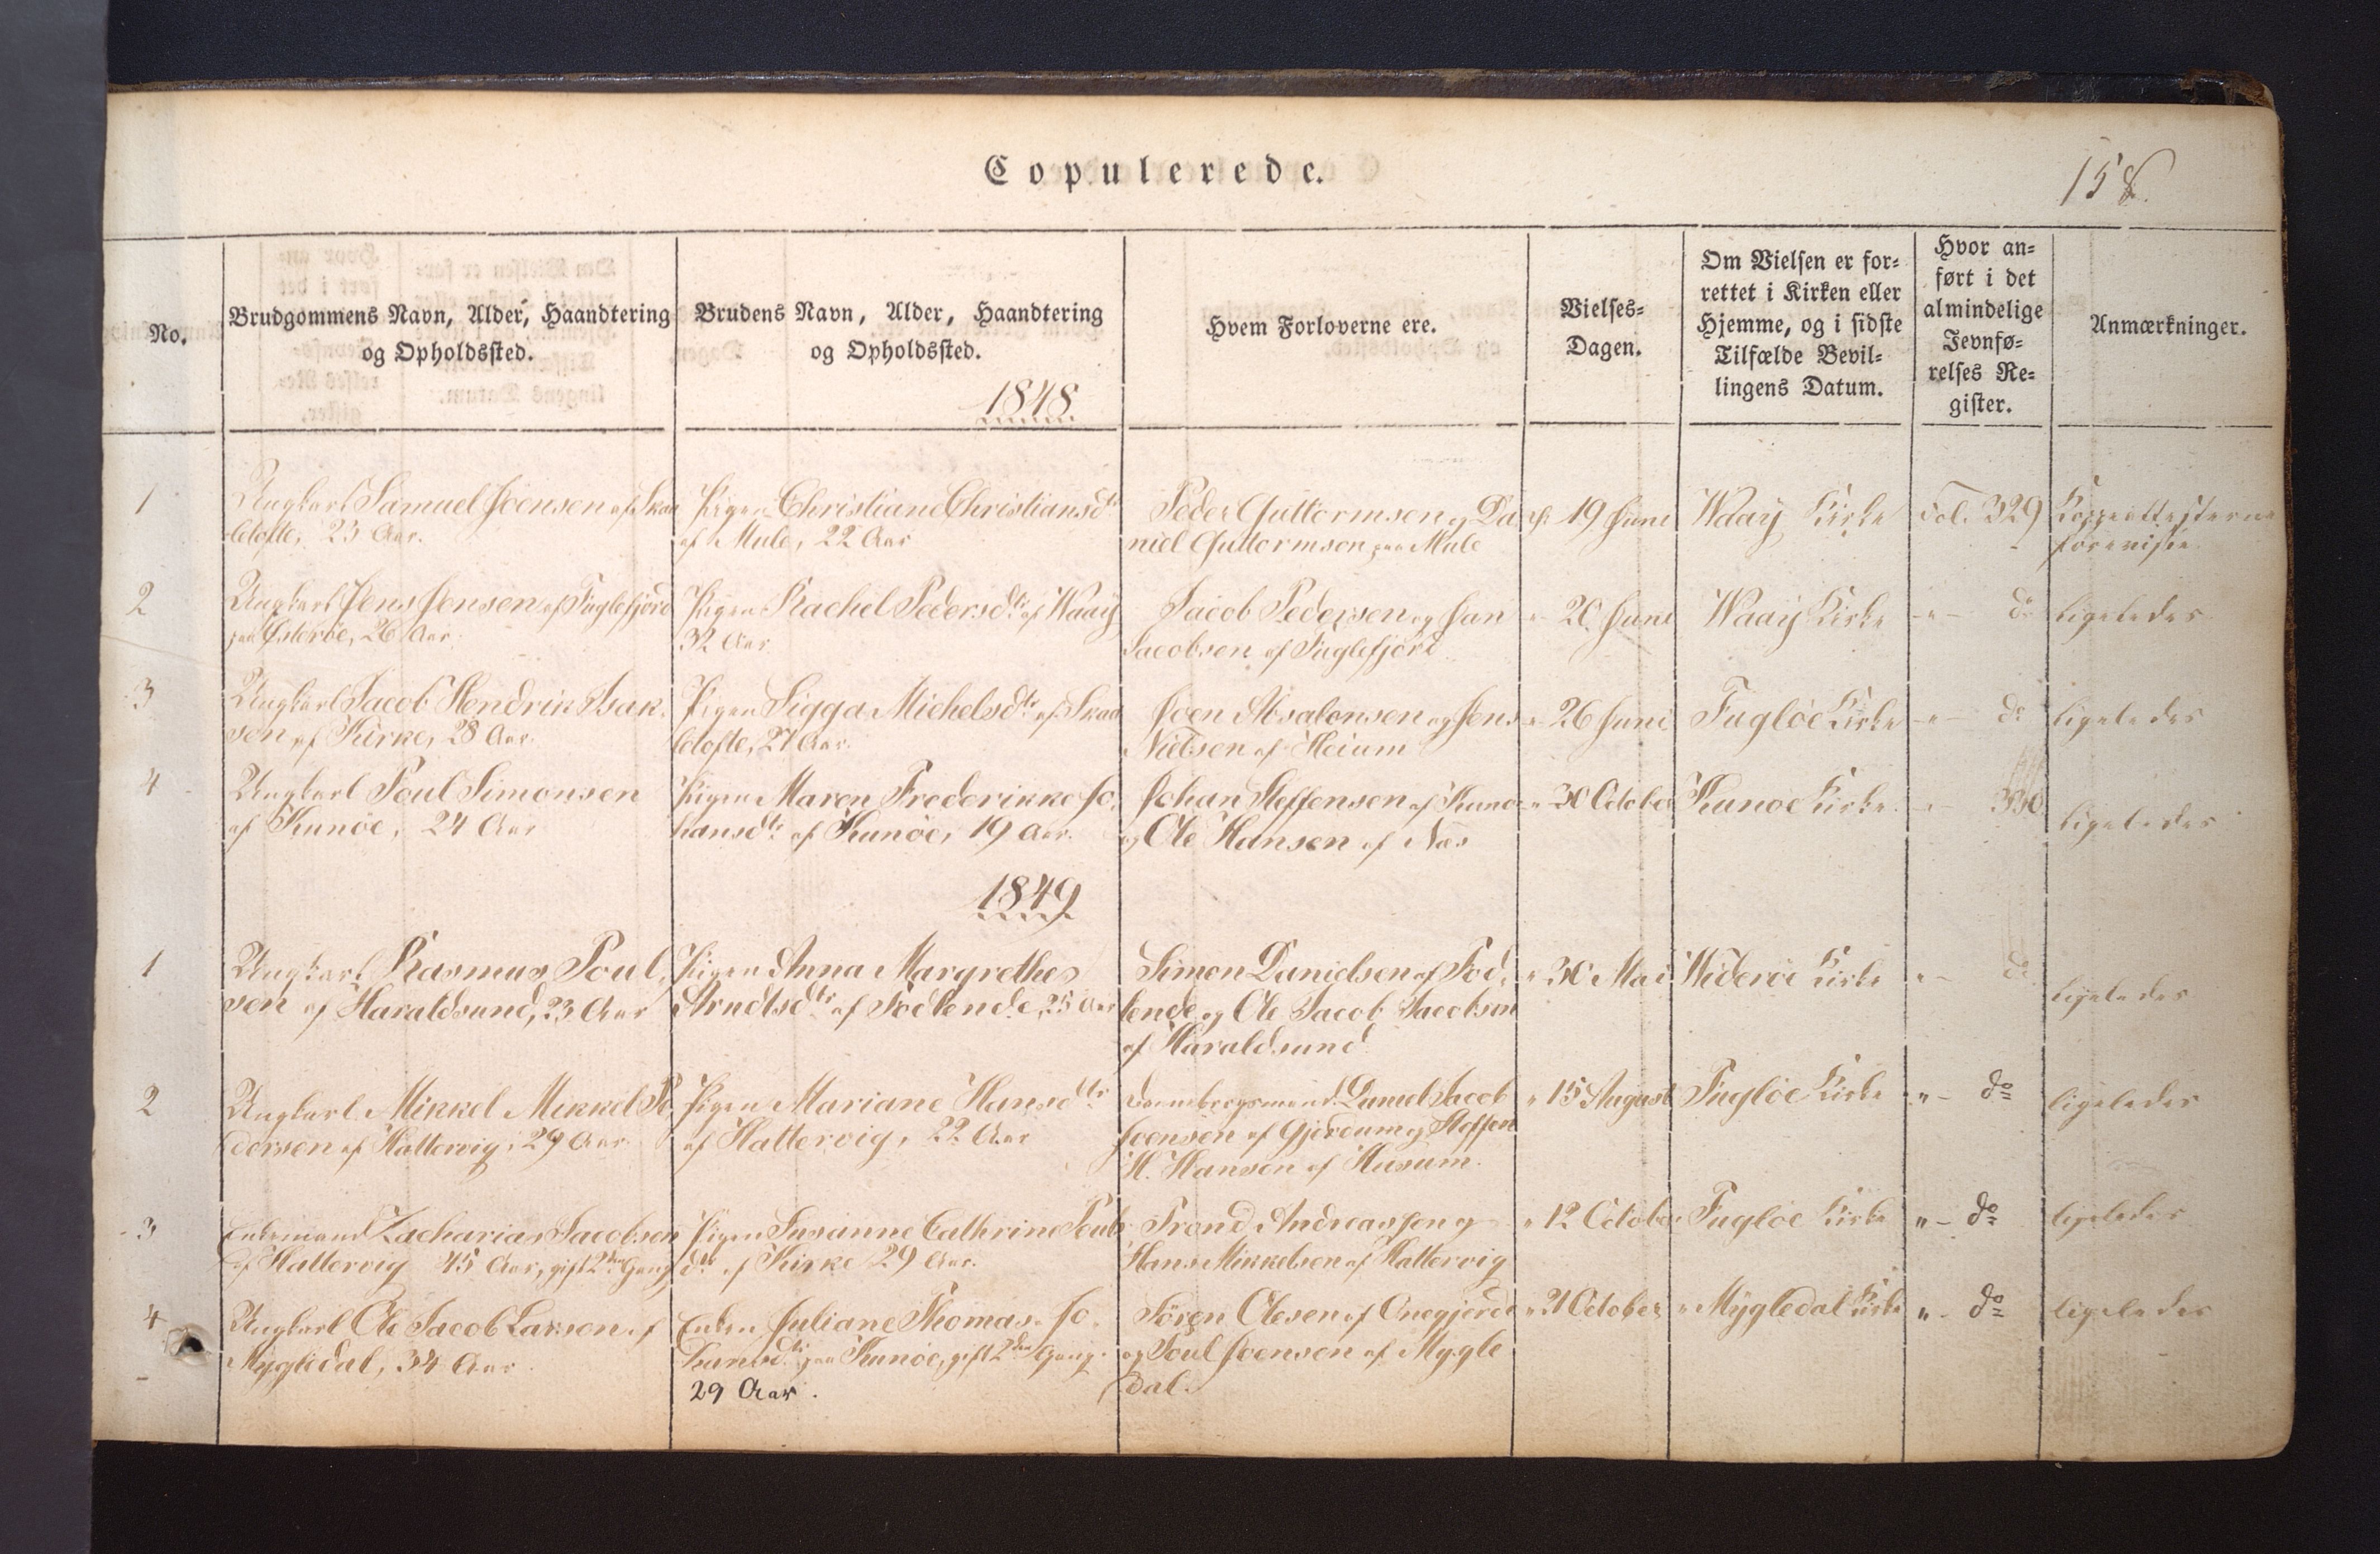 Copulerede.
158.
No.
Brudgommens Navn, Alder, Haandtering
og Opholdssted.
Brudens Navn, Alder, Haandtering
og Opholdssted.
1848
Hvem Forloverne ere.
Vielses-
Dagen.
Om Vielsen er for-
rettet i Kirken eller
Hjemme, og i sidste
Tilfælde Bevil-
lingens Datum.
Hvor an-
ført i det
almindelige
Jevnfø-
relses Re-
gister.
Anmærkninger.
1
Ungkarl Samuel Joensen af Skaa
letofte, 23 Aar.
Pigen Christiane Christiansdtr
af Mule, 22 Aar
Peder Guttormsen og Da
niel Guttormsen paa Mule
19 Juni
Waaÿ Kirke
Fol. 329
Koppeattesterne
foreviste.
2
Ungkarl Jens Jensen af Fuglefjord
paa Österöe, 26 Aar.
Pigen Rachel Pedersdtr af Waaÿ
32 Aar
Jacob Pedersen og Jan
Jacobsen af Fuglefjord
" 20 Juni
Waaÿ Kirke
-"- do
ligeledes
3
Ungkarl Jacob Hendrik Isak-
sen af Kirke, 28 Aar.
Pigen Sigga Michelsdtr af Skaa
letofte, 27 Aar.
Joen Absalonsen og Jens
Nielsen af Heium
" 26 Juni
Fuglöe Kirke
-"- do
ligeledes
4
Ungkarl Poul Simonsen
af Kunöe, 24 Aar
Pigen Maren Frederikke Jo-
hansdtr af Kunöe, 19 Aar.
Johan Steffensen af Kunöe
og Ole Hansen af Næs
" 30 October
Kunoe Kirke
" 330
ligeledes
1849
1
Ungkarl Rasmus Poul-
sen af Haraldsund, 23 Aar
Pigen Anna Margrethe
Arndtsdtr af Södlende, 25 Aar
Simon Danielsen af Söd-
lende og Ole Jacob Jacobsen
af Haraldsund
" 30 Mai
Wideröe Kirke
"- do
ligeledes
2
Ungkarl Mikkel Mikkel Pe-
dersen af Hattervig, 29 Aar
Pigen Mariane Hansdtr
af Hattervig, 22 Aar
Dannebrogsmand Daniel Jacob
Joensen af Gjerdum og Steffen
H. Hansen af Husum.
" 15 August
Fuglöe Kirke
"- do
ligeledes
3
Enkemand Zacharias Jacobsen
af Hattervig 45 Aar, gift 2den Gang
Pigen Susanne Cathrine Pouls
dtr af Kirke 29 Aar.
Trond Andreassen og
Hans Mikkelsen af Hattervig
" 12 October
Fugloe Kirke
"- do
ligeledes
4
Ungkarl Ole Jacob Larsen af
Mygledal, 34 Aar
Enken Juliane Thomas. Jo-
hansdtr paa Kunöe, gift 2den Gang.
29 Aar.
Sören Olesen af Onegjerde
og Poul Joensen af Mygle
dal.
" 21 October
" Mÿgledal Kirke
"- do
ligeledes